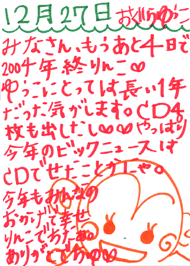 12月27日 おぐらゆうこ
みなさん、もうあと4日で
2004年終りんこ♡
ゆうことっては長い1年
だった気がします。CD4
枚も出したし♡♡やっぱり
今年のビックニュースは
CDでせたことかにゃ。
今年もみんなの
おかげで幸せ
りんこでうたあ。
ありがとりんゆう♡